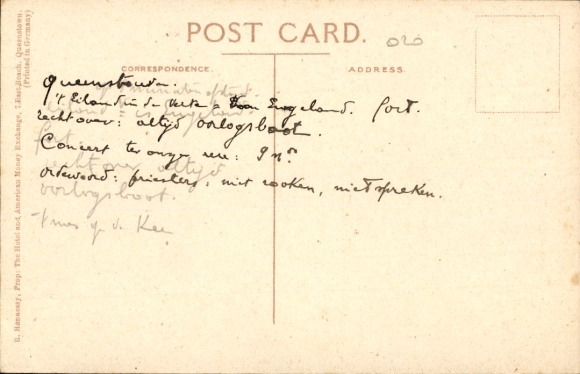 POST CARD.
020
CORRESPONDENCE.
ADDRESS.
Queenstown.
't Eiland in de verte = van Engeland. fort.
rechtover: altijd oorlogsboot.
Concert te onzer eere: 9 nrs
ordewoord: priesters, niet rooken, niet spreken.
fort
rechtover altijd
oorlogsboot.
R. Hennessy, Prop: The Hotel and American Money Exchange, 7 East Beach, Queenstown.
(Printed in Germany)